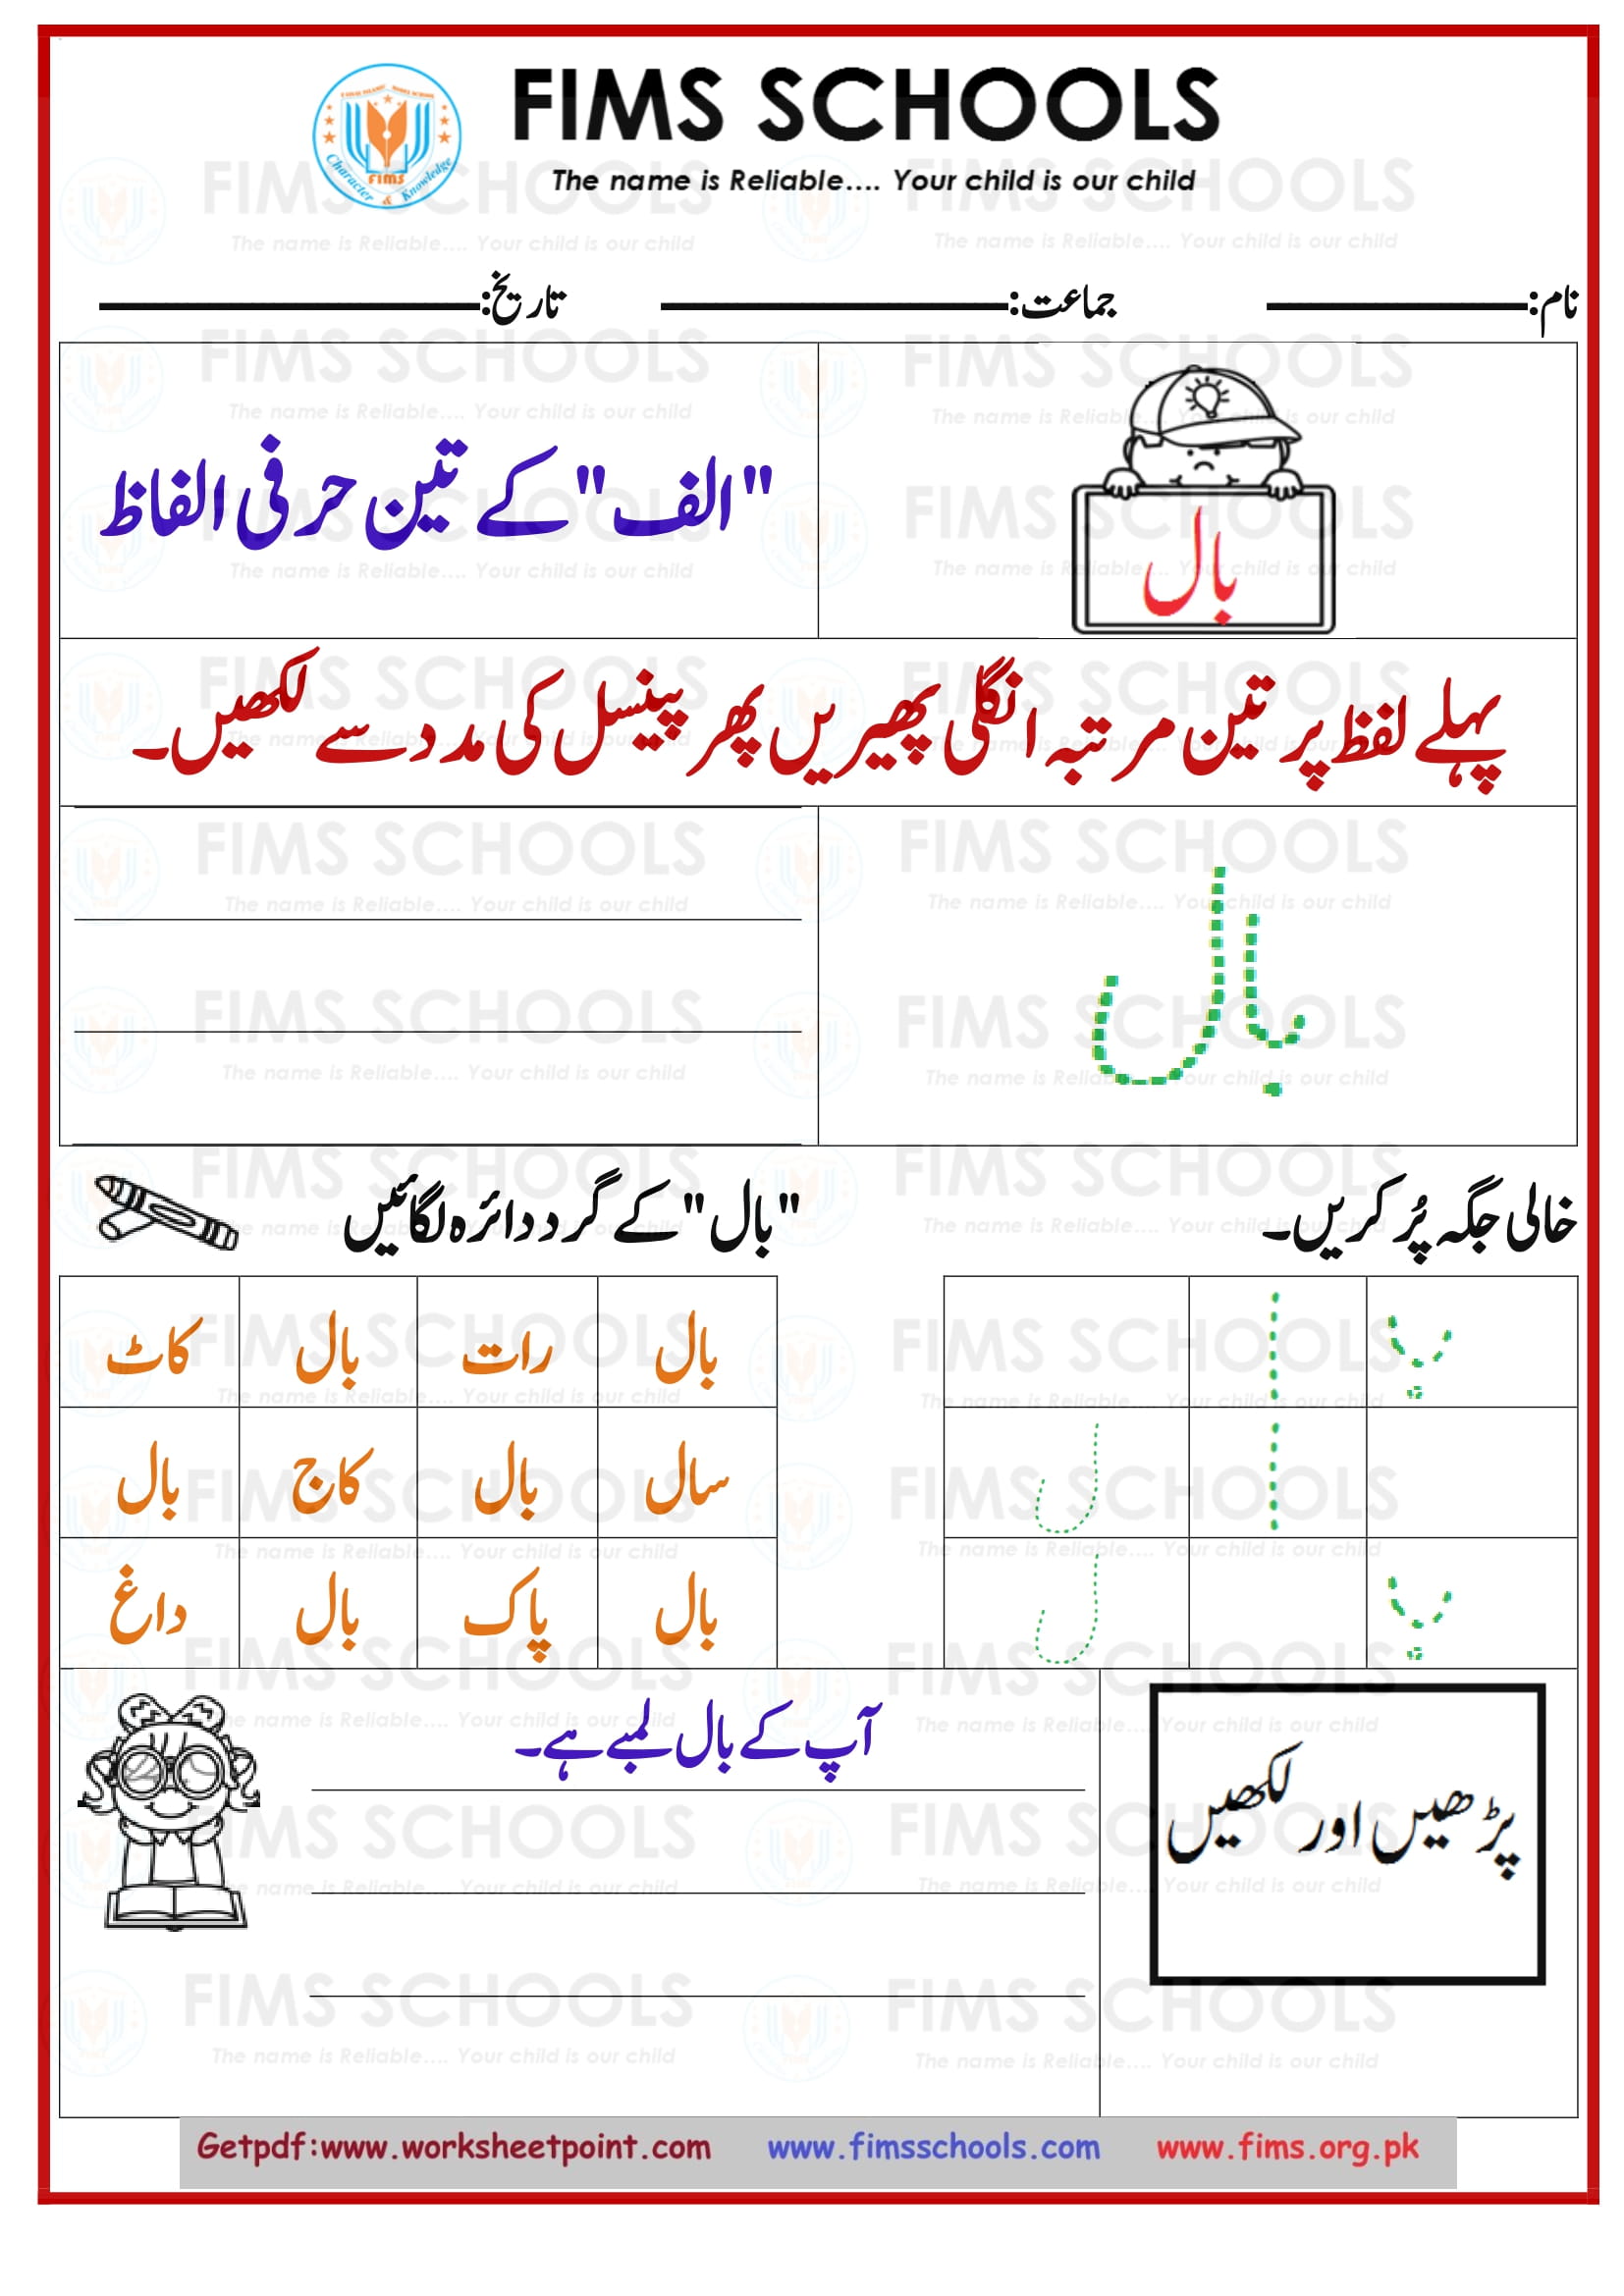 FIMS SCHOOLS
The name is Reliable.... Your child is our child
FIMS
Character & Knowledge
نام: جماعت: تاریخ:
بال
"الف" کے تین حرفی الفاظ
پہلے لفظ پر تین مرتبہ انگلی پھیریں پھر پینسل کی مدد سے لکھیں۔
بال
خالی جگہ پُر کریں۔
ب ا
ا ل
ب ل
"بال" کے گرد دائرہ لگائیں
بال رات بال کاٹ
سال بال کاج بال
بال پاک بال داغ
پڑھیں اور لکھیں
آپ کے بال لمبے ہے۔
Getpdf:www.worksheetpoint.com www.fimsschools.com www.fims.org.pk